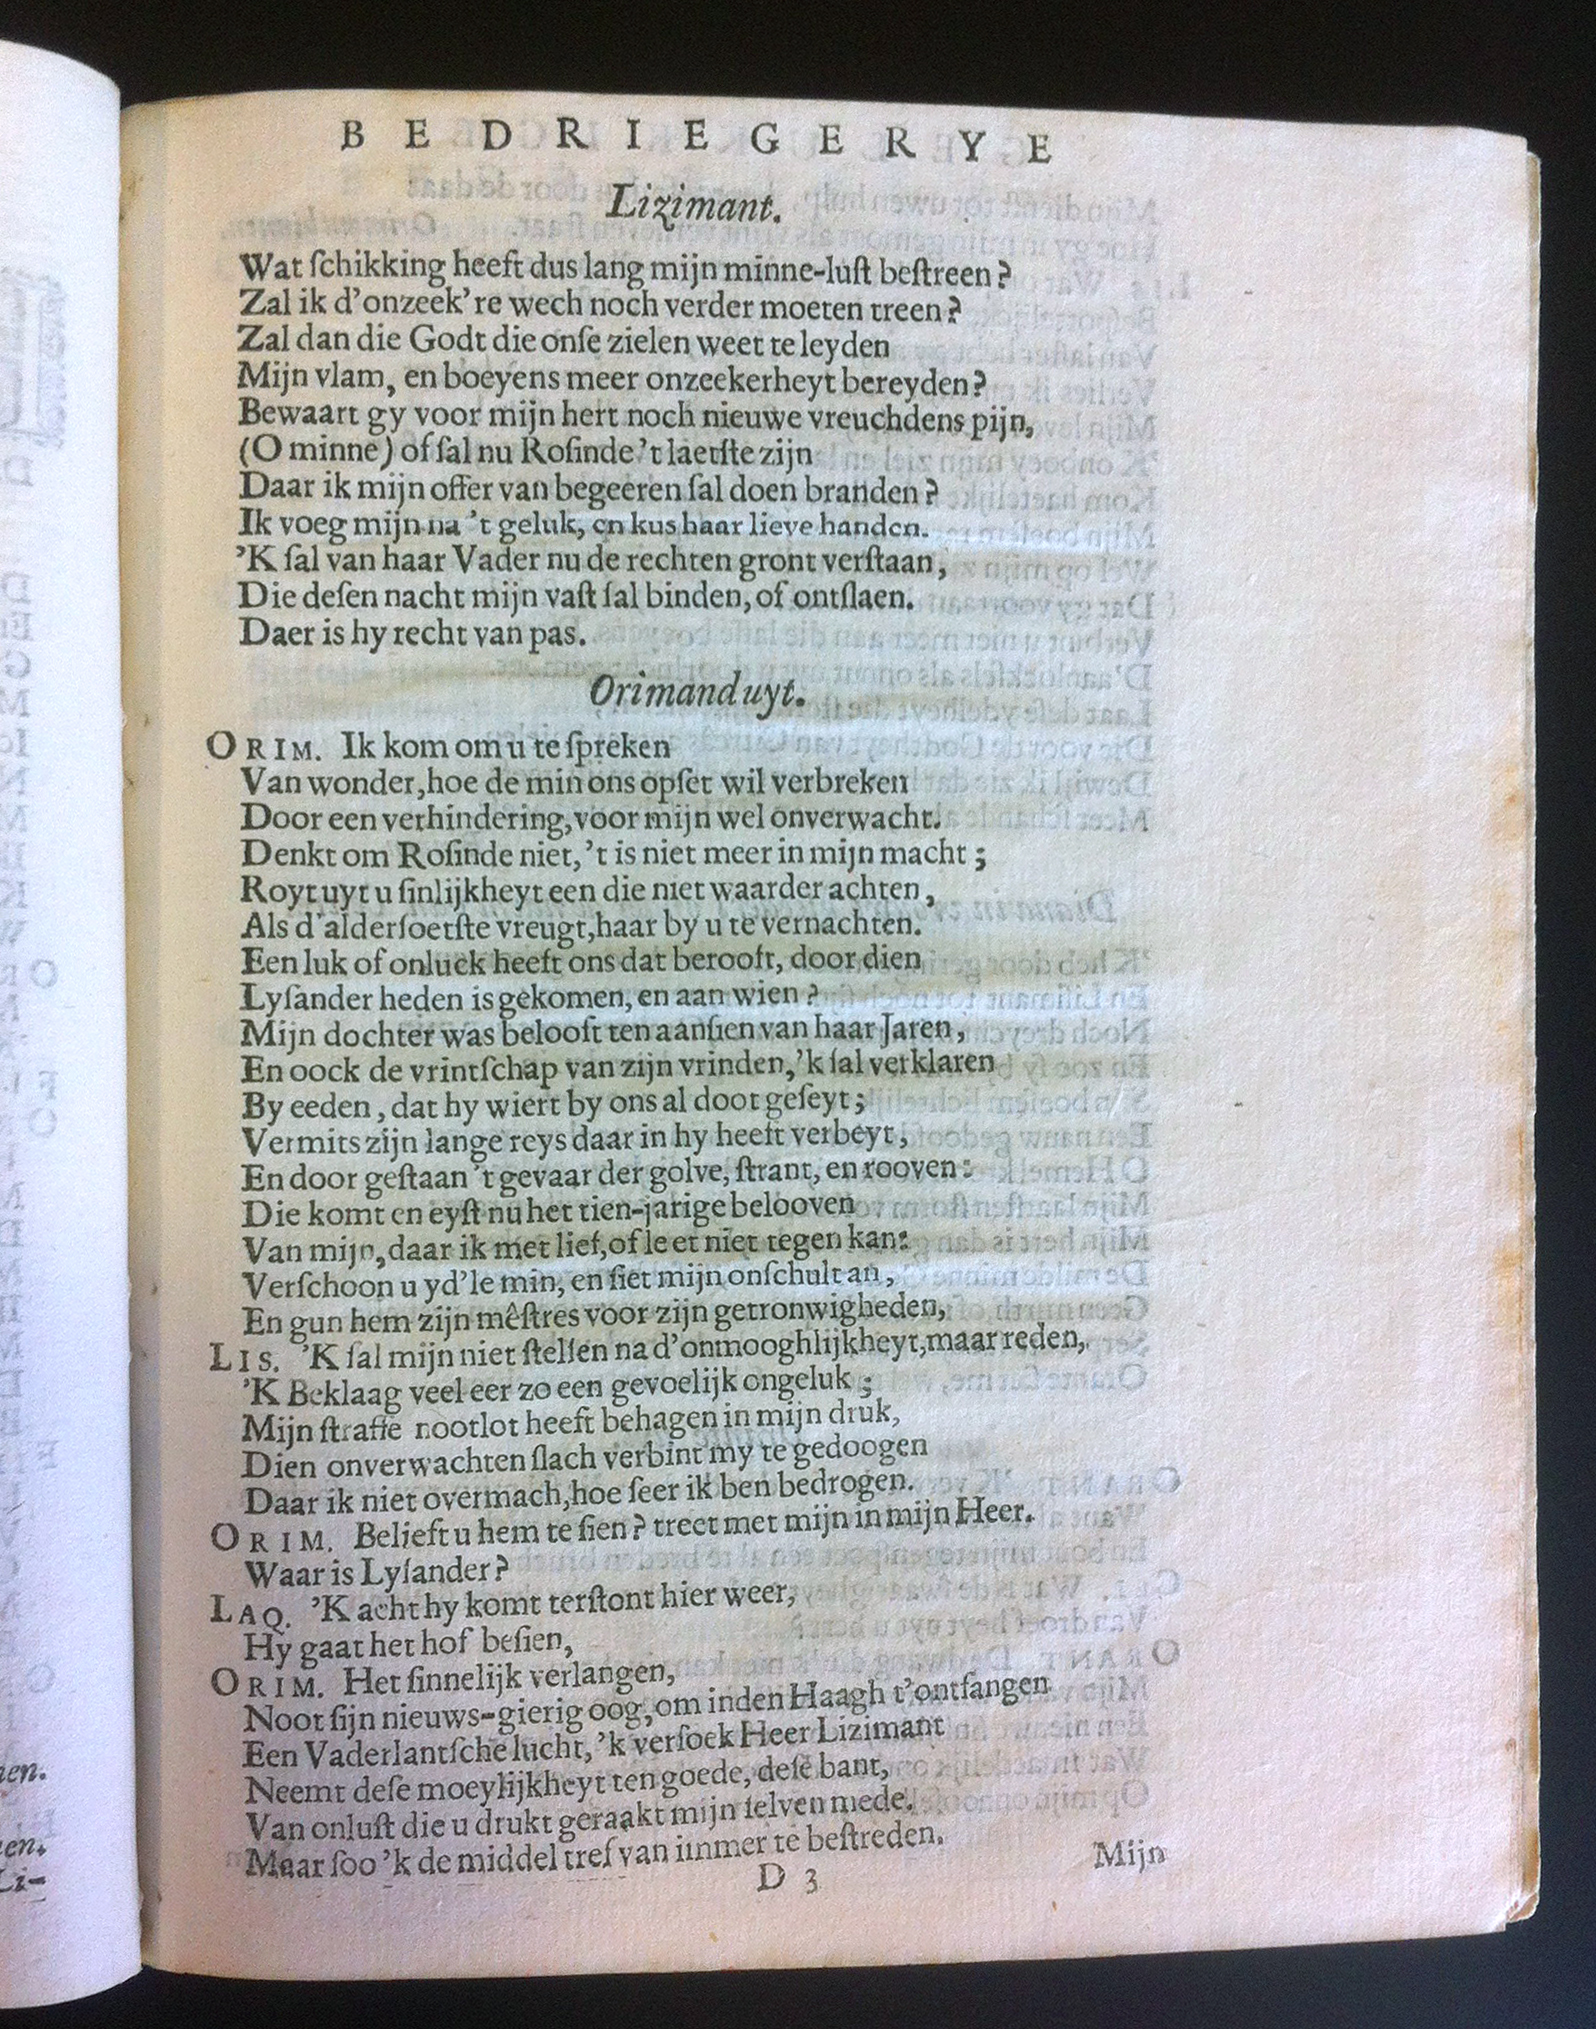 BEDRIEGERYE
Lizimant.
Wat ſchikking heeft dus lang mijn minne-luſt beſtreen?
Zal ik d'onzeek're wech noch verder moeten treen?
Zal dan die Godt die onſe zielen weet te leyden
Mijn vlam, en boeyens meer onzeekerheyt bereyden?
Bewaart gy voor mijn hert noch nieuwe vreuchdens pijn,
(O minne) of ſal nu Roſinde 't laetſte zijn
Daar ik mijn offer van begeeren ſal doen branden?
Ik voeg mijn na 't geluk, en kus haar lieve handen.
'K ſal van haar Vader nu de rechten gront verſtaan,
Die deſen nacht mijn vaſt ſal binden, of ontſlaen.
Daer is hy recht van pas.
Orimand uyt.
ORIM. Ik kom om u te ſpreken
Van wonder, hoe de min ons opſet wil verbreken
Door een verhindering, voor mijn wel onverwacht.
Denkt om Roſinde niet, 't is niet meer in mijn macht;
Royt uyt u ſinlijkheyt een die niet waarder achten,
Als d'alderſoetſte vreugt, haar by u te vernachten.
Een luk of onluck heeft ons dat berooft, door dien
Lyſander heden is gekomen, en aan wien?
Mijn dochter was belooft ten aanſien van haar Jaren,
En oock de vrintſchap van zijn vrinden, 'k ſal verklaren
By eeden, dat hy wiert by ons al doot geſeyt;
Vermits zijn lange reys daar in hy heeft verbeyt,
En door geſtaan 't gevaar der golve, ſtrant, en rooven:
Die komt en eyſt nu het tien-jarige belooven
Van mijn, daar ik met lief, of leet niet tegen kan:
Verſchoon u yd'le min, en ſiet mijn onſchult an,
En gun hem zijn mêſtres voor zijn getronwigheden,
LIS. 'K ſal mijn niet ſtellen na d'onmooghlijkheyt, maar reden,
'K Beklaag veel eer zo een gevoelijk ongeluk;
Mijn ſtraffe nootlot heeft behagen in mijn druk,
Dien onverwachten ſlach verbint my te gedoogen
Daar ik niet overmach, hoe ſeer ik ben bedrogen.
ORIM. Belieft u hem te ſien? treet met mijn in mijn Heer.
Waar is Lyſander?
LAQ. 'K acht hy komt terſtont hier weer,
Hy gaat het hof beſien,
ORIM. Het ſinnelijk verlangen,
Noot ſijn nieuws-gierig oog, om inden Haagh t'ontfangen
Een Vaderlantſche lucht, 'k verſoek Heer Lizimant
Neemt deſe moeylijkheyt ten goede, deſe bant,
Van onluſt die u drukt geraakt mijn ſelven mede.
Maar ſoo 'k de middel tref van immer te beſtreden.
D 3
Mijn
nen.
en.
Li-